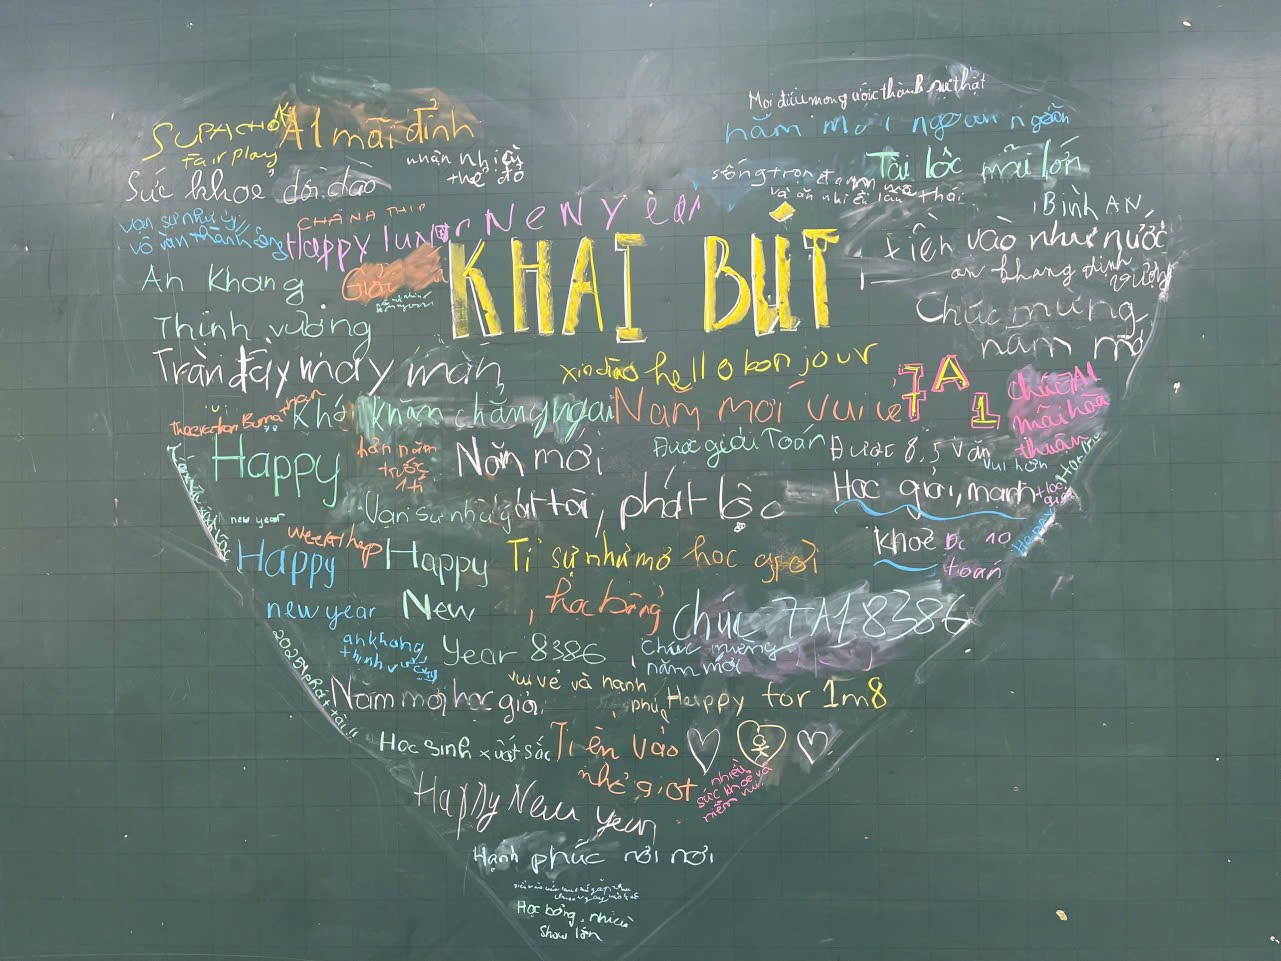 Mọi điều mong ước thành sự thật
SUPACHOK
A1 mãi đỉnh
năm mới ngoan ngoãn
Fair play
nhận nhiều
thẻ đỏ
Tài lộc mãi lớn
Sức khoẻ dồi dào
sống trọn
Vạn sự như ý
vô vàn thành công
CHANATHIP
Happy lunar New Year
BìNH AN
KHAI BÚT
tiền vào như nước
an khang thịnh
vượng
An Khang
Giỏi
Chúc mừng
năm mới
Thịnh vượng
Tràn đầy may mắn
xin chào hello bonjour
7A1
chúc A1
mãi hòa
thuận
khăn chẳng ngại
Năm mới vui vẻ
Được giải Toán
Được 8,5 văn
vui hơn
Happy
new year
hơn năm
trước
1 tí
Năm mới
phát tài, phát lộc
Học giỏi, mạnh
khoẻ
Đc 10
toán
Vạn sự như ý
Happy
new year
Happy
New
Year 8386
Tỉ sự như mơ
học giỏi
, học bổng
Chúc 7A1 8386
an khang
thịnh vượng
chúc mừng
năm mới
2025 phát tài!!
Năm mới học giỏi
vui vẻ và hạnh
phúc
Happy for 1m8
Học sinh xuất sắc
Tiền vào
như giọt
nhiều
sức khoẻ và
niềm vui
Happy New year
Hạnh phúc nơi nơi
Học bổng, nhiều
show lớn